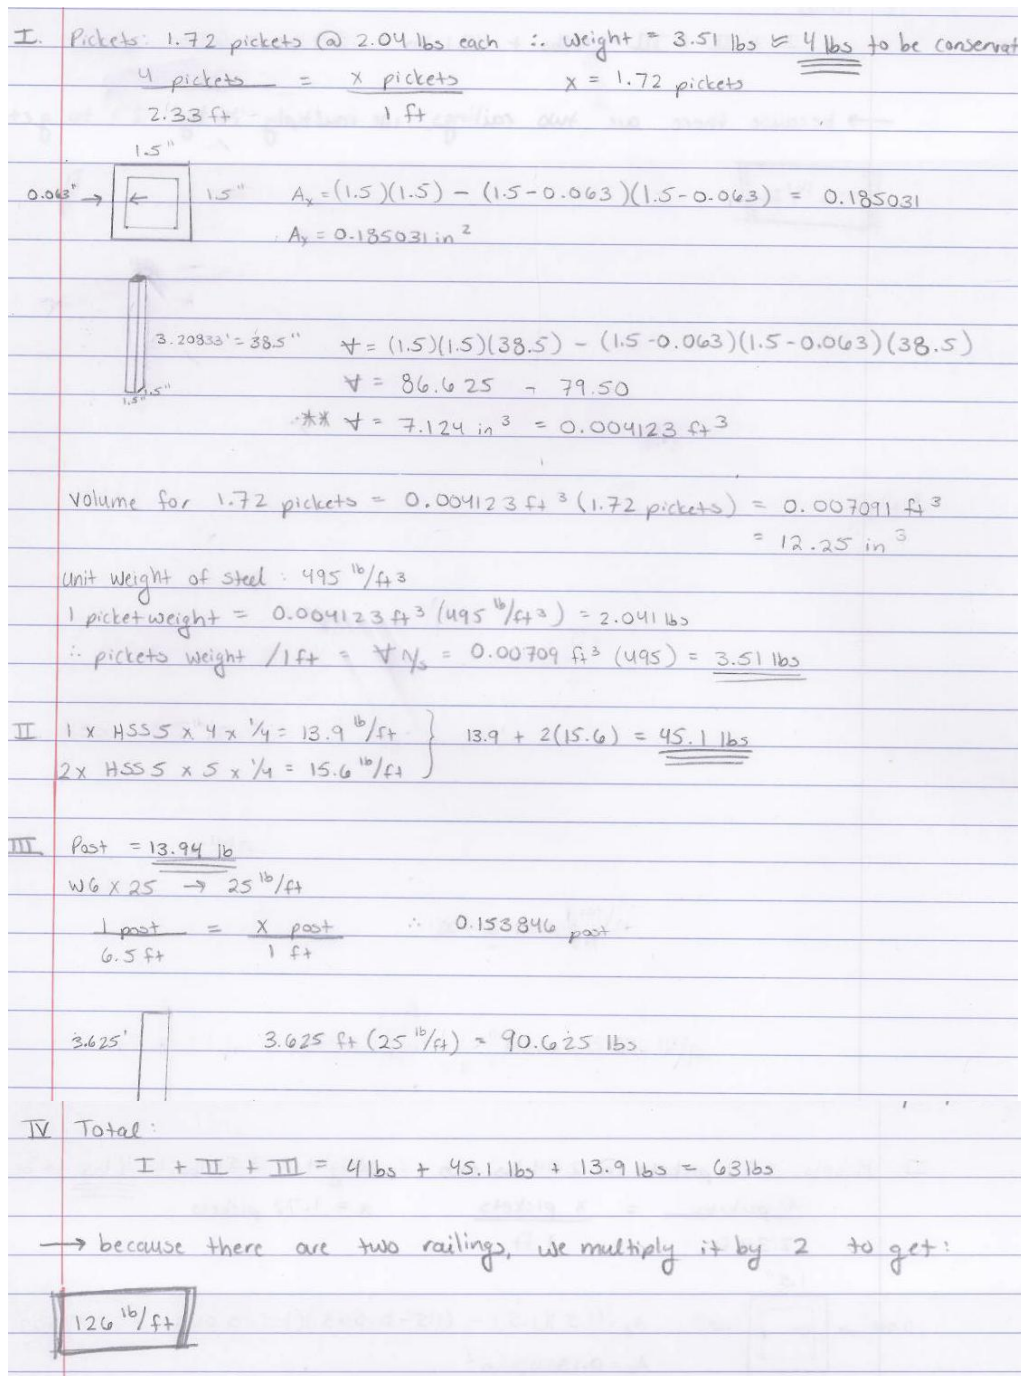 I. Pickets: 1.72 pickets @ 2.04 lbs each ∴ weight = 3.51 lbs ≈ 4 lbs to be conservat
4 pickets = x pickets x = 1.72 pickets
2.33 ft 1 ft
1.5"
0.063" → 1.5" Ax = (1.5)(1.5) - (1.5-0.063)(1.5-0.063) = 0.185031
Ax = 0.185031 in²
3.20833' = 38.5" V = (1.5)(1.5)(38.5) - (1.5-0.063)(1.5-0.063)(38.5)
1.5" 1.5" V = 86.625 - 79.50
** V = 7.124 in³ = 0.004123 ft³
Volume for 1.72 pickets = 0.004123 ft³ (1.72 pickets) = 0.007091 ft³
= 12.25 in³
Unit weight of steel: 495 lb/ft³
1 picket weight = 0.004123 ft³ (495 lb/ft³) = 2.041 lbs
∴ pickets weight /1ft = V γs = 0.00709 ft³ (495) = 3.51 lbs
II 1 x HSS 5 x 4 x 1/4 = 13.9 lb/ft } 13.9 + 2(15.6) = 45.1 lbs
2x HSS 5 x 5 x 1/4 = 15.6 lb/ft
III Post = 13.94 lb
W6 x 25 → 25 lb/ft
1 post = x post ∴ 0.153846 post
6.5 ft 1 ft
3.625' 3.625 ft (25 lb/ft) = 90.625 lbs
IV Total:
I + II + III = 4 lbs + 45.1 lbs + 13.9 lbs = 63 lbs
→ because there are two railings, we multiply it by 2 to get:
126 lb/ft